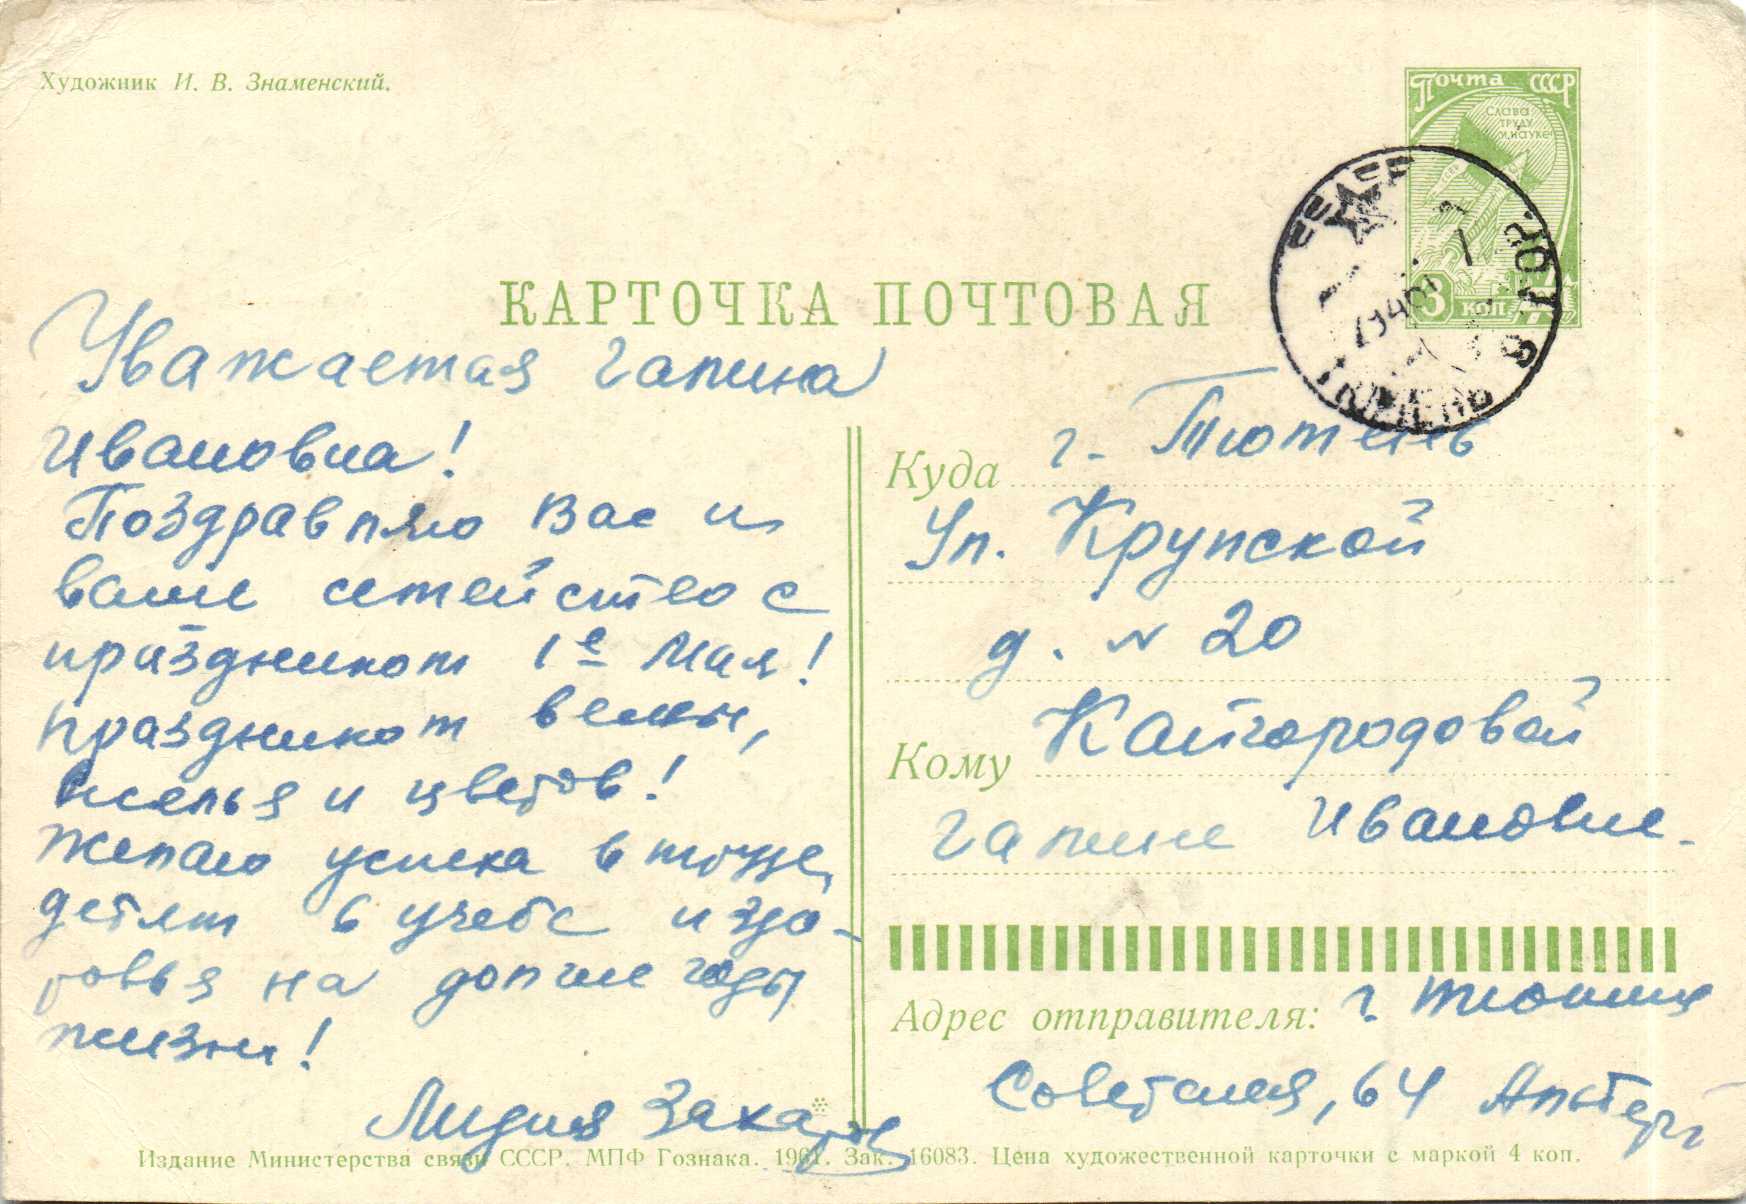 Художник И. В. Знаменский.
Почта СССР
Слава
труду
и науке
3 коп
КАРТОЧКА ПОЧТОВАЯ
Уважаемая Галина
Ивановна!
Поздравляю Вас и
ваше семейство с
праздником 1е Мая!
Праздником весны,
веселья и цветов!
Желаю успеха в труде,
детям в учебе и здо-
ровья на долгие годы
жизни!
Лидия
Куда г. Тюмень
Ул. Крупской
д. № 20
Кому Кайгородовой
Галине Ивановне.
Адрес отправителя: г. Тюмень
Советская, 64
Издание Министерства связи СССР. МПФ Гознака. 1961. Зак. 16083. Цена художественной карточки с маркой 4 коп.